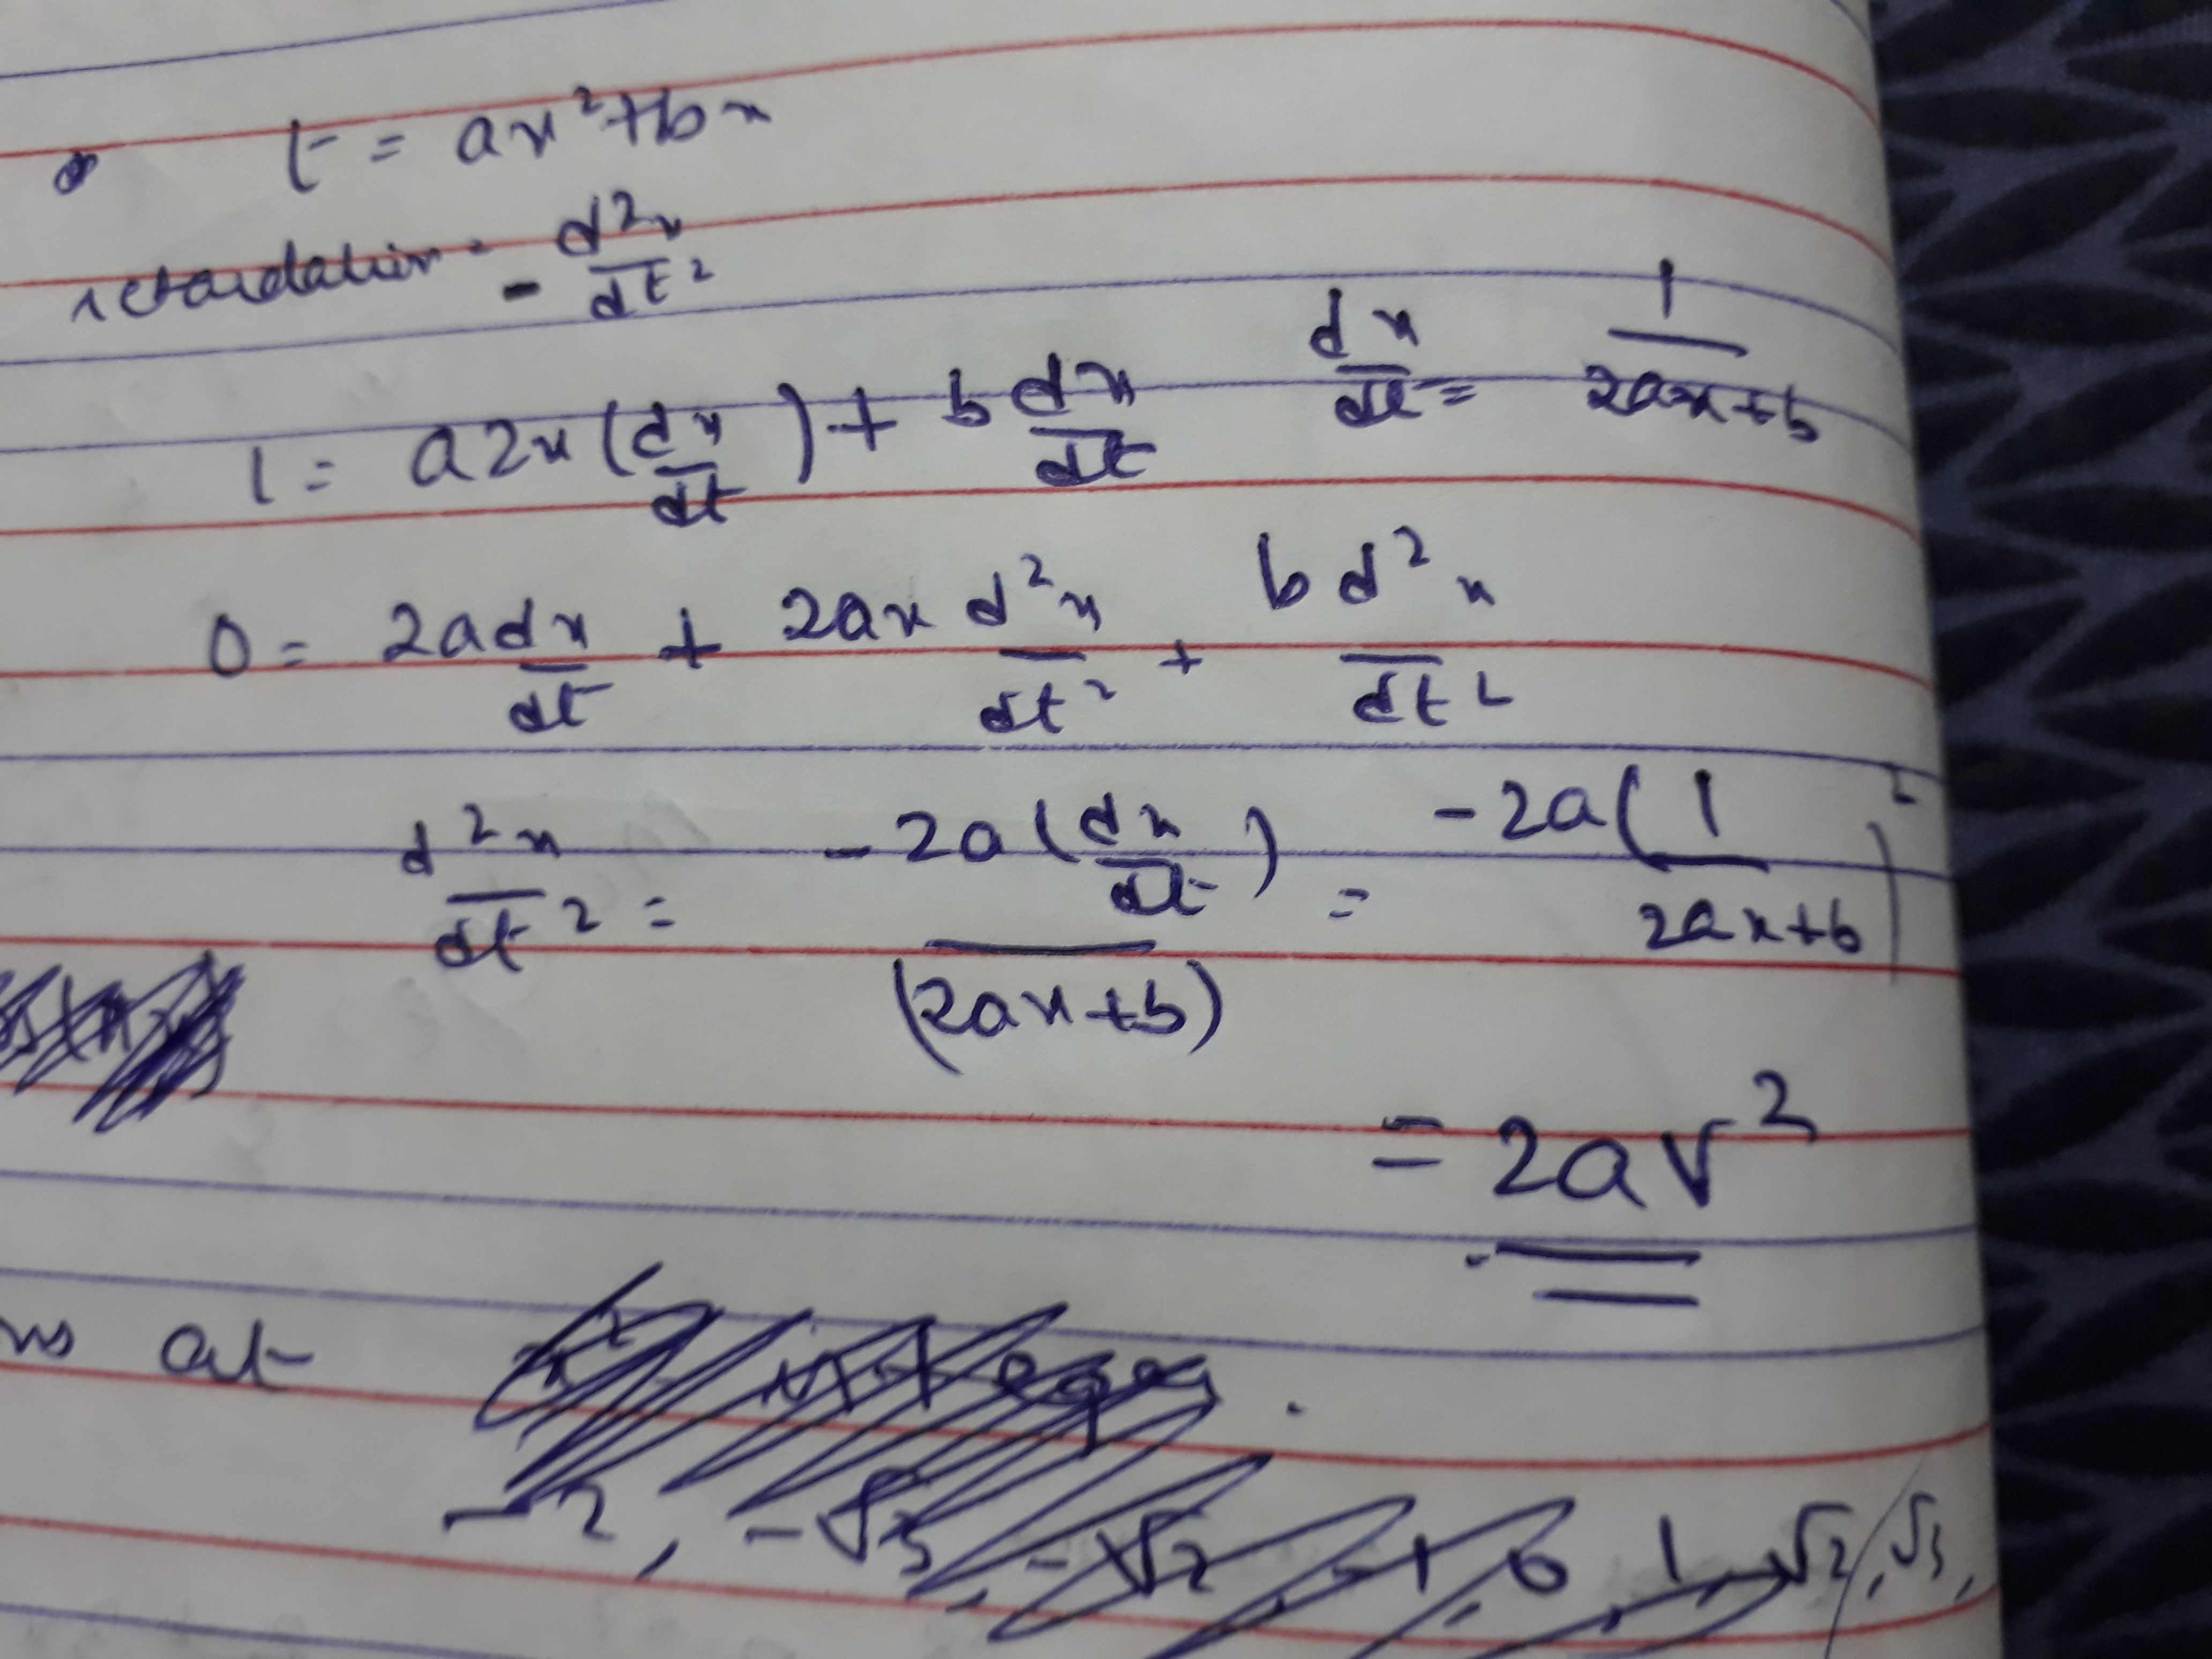 t = ax²+bx
retardation = - d²x/dt²
1 = a2x(dx/dt) + b dx/dt    dx/dt = 1/2ax+b
0 = 2a dx/dt + 2ax d²x/dt² + b d²x/dt²
d²x/dt² = -2a(dx/dt)/(2ax+b) = -2a(1/2ax+b)²
= 2av²
at
-2, -√3, -√2, -1, 0, 1, √2, √3,